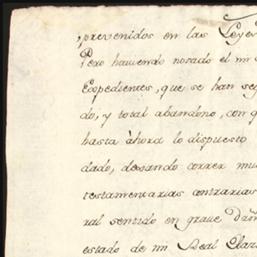 prevenidos en las Leyes
Pero haviendo notado el mi
Expedientes, que se han seg
do, y total abandono, con q
hasta ahora lo dispuesto
dado, dexando correr mu
testamentarias contrarias
ral sentido en grave
estado de mi Real